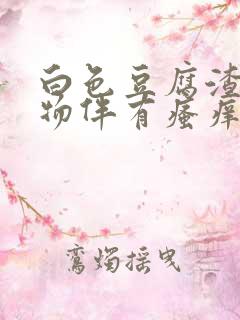 白色豆腐渣
物伴有瘙痒
鸾烛摇曳